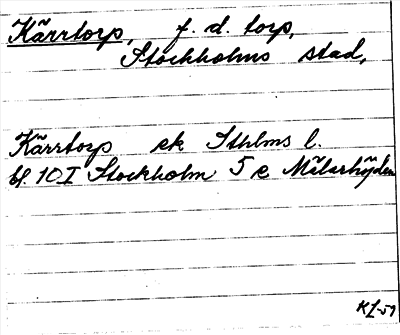 Kärrtorp, f. d. torp,
Stockholms stad,
Kärrtorp ek Sthlms l.
bl. 10 I Stockholm 5 e Mälarhöjden
KL-59